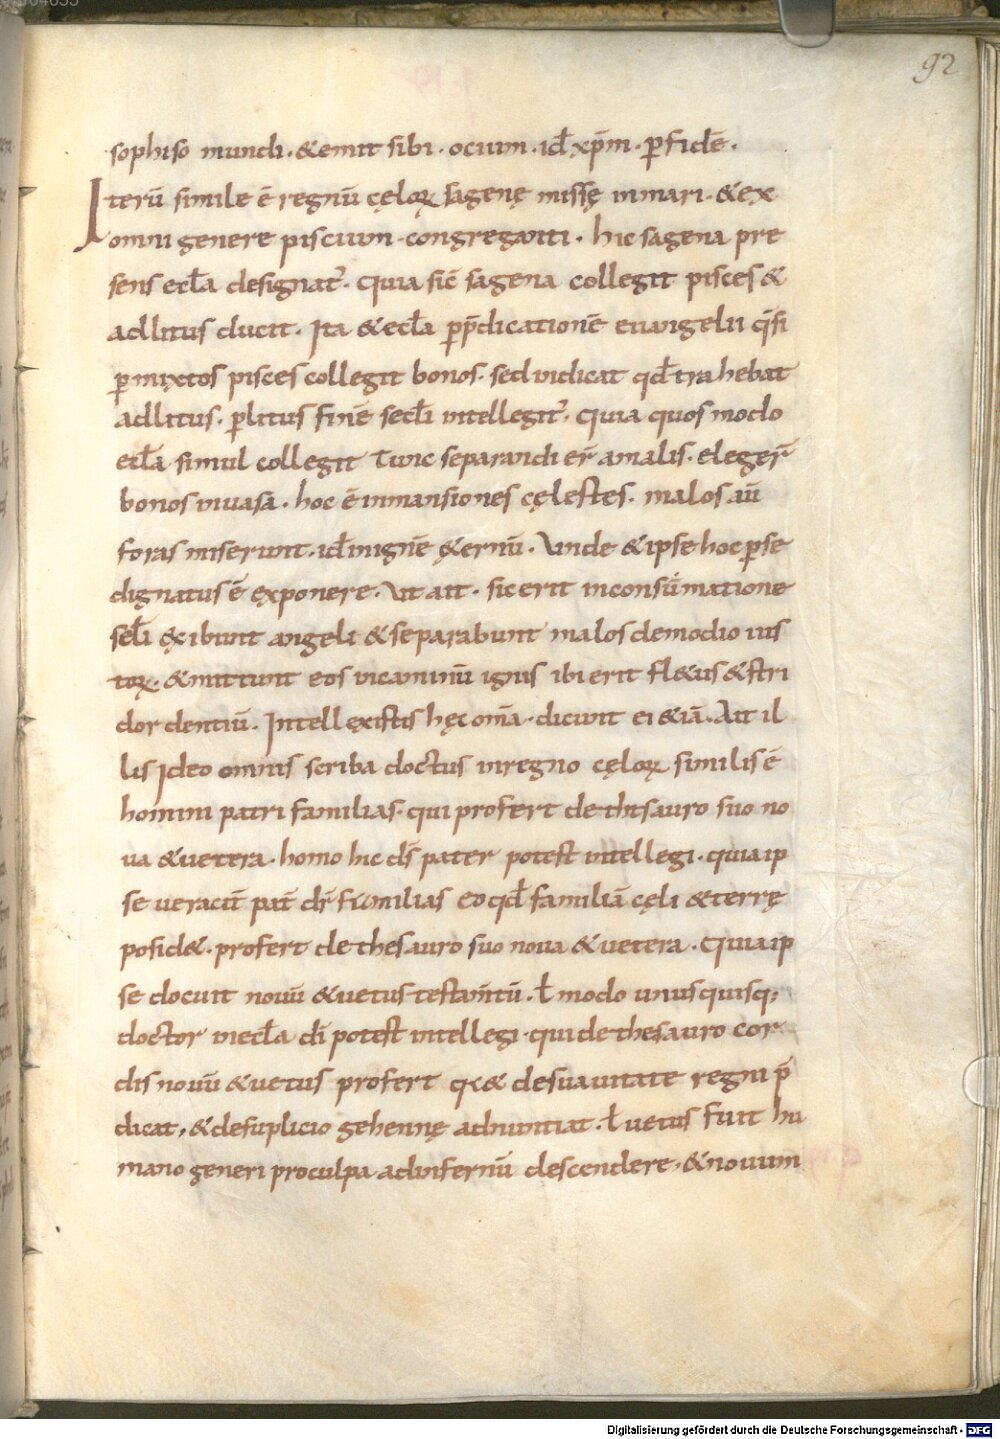 92
sophiso mundi · & emit sibi · ocium · id̄ xp̄m · ꝑ fidē ·
Iterū simile ē regnū cęloꝝ sagenę missę in mari · & ex
omni genere piscium · congreganti · hic sagena pre
sens eccl̄a designat᷑ · quia sic̄ sagena collegit pisces &
ad litus ducit · Ita & eccl̄a ꝑ p̄dicationē euangelii q̄si
ꝑmixtos pisces collegit bonos · sed uidicat qd̄ trahebat
ad litus · ꝑ litus finē secl̄i intellegit᷑ · quia quos modo
eccl̄a simul collegit tunc separandi er̄ a malis · eleger̄
bonos in uasa · hoc ē in mansiones cęlestes · malos aū
foras miserunt · id̄ in ignē &ernū · Unde & ipse hoc ꝑ se
dignatus ē exponere · Ut ait · sic erit in consūmatione
scl̄i exibunt angeli & separabunt malos de modio ius
toꝝ · & mittunt eos in caminū ignis ibi erit fl&us & stri
dor dentiū · Intellexistis hęc om̄a · dicunt ei &iā · Ait il
lis Ideo omnis scriba doctus in regno cęloꝝ similis ē
homini patri familias · qui profert de thesauro suo no
ua & uetera · homo hic ds̄ pater potest intellegi · quia ip
se ueracit̄ pat̄ dr̄ familias eo qd̄ familiā cęli & terrę
posid& · profert de thesauro suo noua & uetera · quia ip
se docuit nouū & uetus testam̄tū · ł modo unus quisq;
doctor in eccl̄a dī potest intellegi · qui de thesauro cor
dis nouū & uetus profert de suauitate regni p̄
dicat, & de suplicio gehennę adnuntiat · ł uetus fuit hu
mano generi pro culpa ad infernū descendere, & nouum
Digitalisierung gefördert durch die Deutsche Forschungsgemeinschaft - DFG